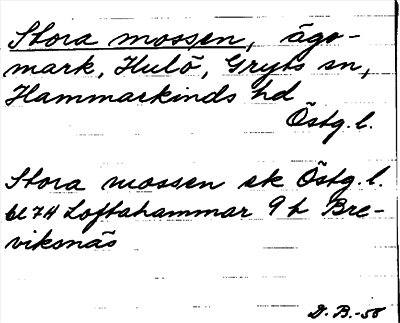 Stora mossen, ägo-
mark, Hulö, Gryts sn,
Hammarkinds hd
Östg. l.
Stora mossen ek Östg. l.
bl 74 Loftahammar 9 h Bre-
viksnäs
D. B.-58